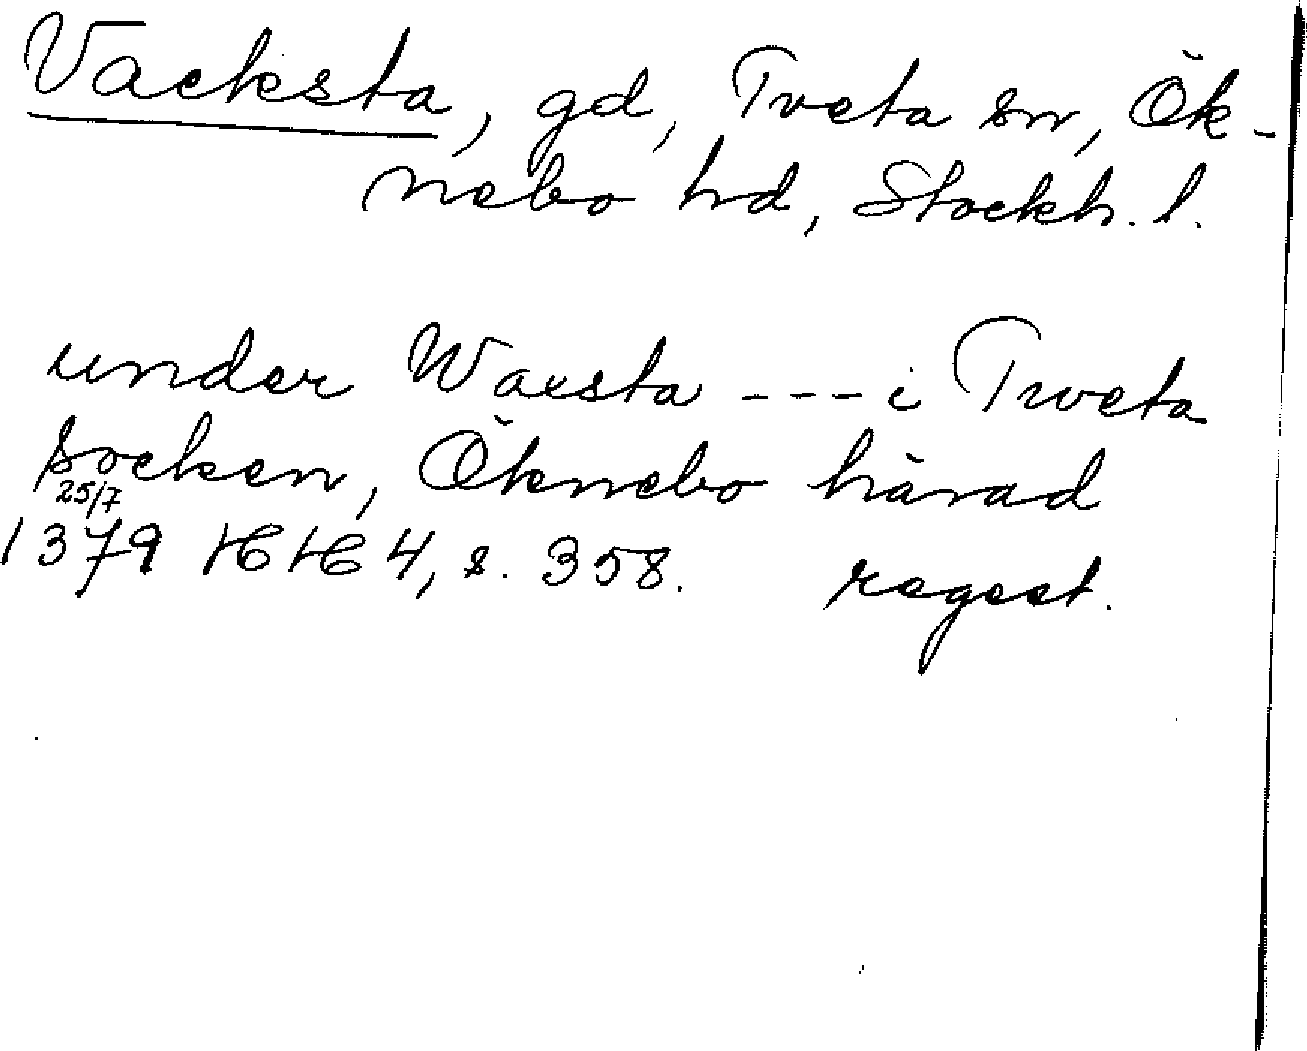 Vacksta, gd, Tveta sn, Ök-
nebo hd, Stockh. l.
under Waxsta --- i Tweta
socken, Öknebo härad
25/7
1379 HH 4, s. 358. regest.